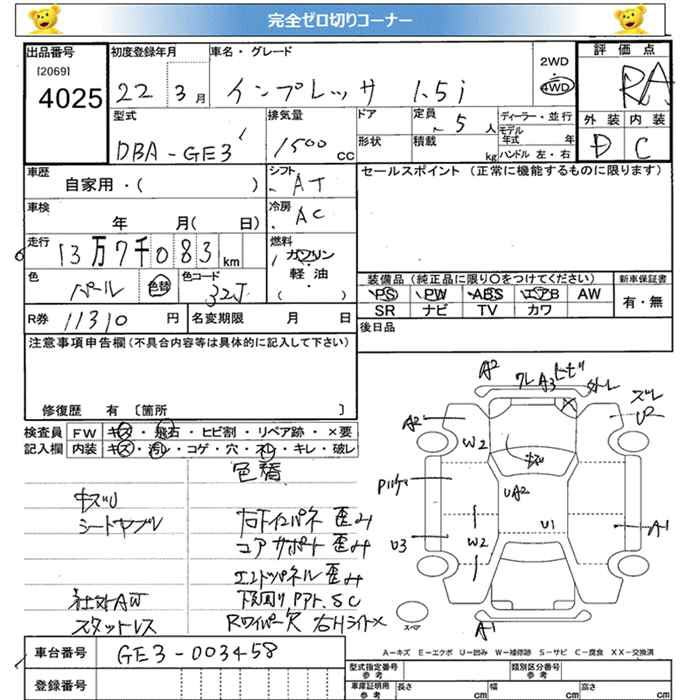 完全ゼロ切りコーナー
出品番号 初度登録年月 車名・グレード 2WD 評価点
[2069]
4025 22 3月 インプレッサ 1.5i 4WD RA
型式 排気量 ドア 定員 ディーラー・並行 外装 内装
DBA-GE3 1500 cc 5人 モデル年式 年 D C
形状 積載 kg ハンドル 左・右
車歴 シフト セールスポイント (正常に機能するものに限ります)
自家用・( ) AT
車検 冷房
年 月( 日) AC
走行 燃料
13万7千083 km ガソリン
軽・油
( )
色 色替 色コード 装備品 (純正品に限り〇をつけてください) 新車保証書
パール 32J PS PW ABS エアB AW 有・無
SR ナビ TV カワ
R券 11310 円 名変期限 月 日 後日品
注意事項申告欄(不具合内容等は具体的に記入して下さい)
修復歴 有 [箇所 ]
検査員 FW キズ・飛石・ヒビ割・リペア跡・×要
記入欄 内装 キズ・汚レ・コゲ・穴・ネレ・キレ・破レ
色替
キズU
シートヤブレ 右Fインパネ 歪み
コアサポート 歪み
エンドパネル 歪み
社外AW 下回り,Pアト,SC
スタットレス Rワイパー欠 右Hライト×
A2 ワレ A3 ヒビ 外レ ズレ
A2 W2 U2
キズ
UA2
U1
U3 W2 A1
スペア A1
A=キズ E=エクボ U=凹み W=補修跡 S=サビ C=腐食 XX=交換済
車台番号 GE3-003458 型式指定番号 参考 類別区分番号 参考
登録番号 車庫証明用 参考 長さ cm 幅 cm 高さ cm